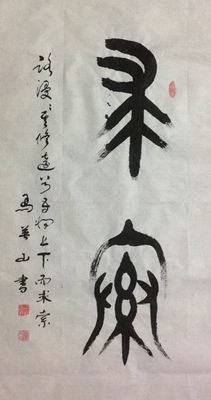 求索
路漫漫其修遠兮吾將上下而求索
馬英山書